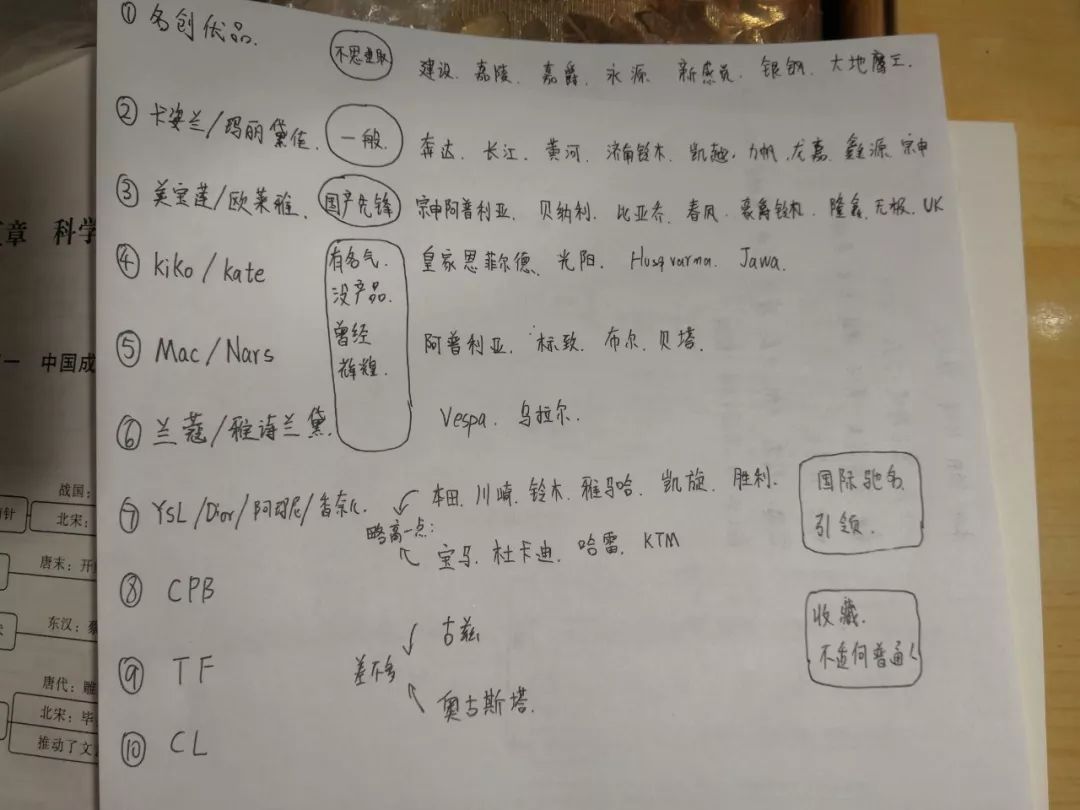 ① 名创优品.
不思进取
建设. 嘉陵. 嘉爵. 永源. 新感觉. 银钢. 大地鹰王.
② 卡姿兰/玛丽黛佳.
一般.
奔达. 长江. 黄河. 济南铃木. 凯越. 力帆. 龙嘉. 鑫源. 宗申
③ 美宝莲/欧莱雅.
国产先锋
宗申阿普利亚. 贝纳利. 比亚乔. 春风. 豪爵铃木. 隆鑫. 无极. UK
④ kiko/kate
有名气.
没产品.
曾经
辉煌.
皇家恩菲尔德. 光阳. Husqvarna. Jawa.
⑤ Mac/Nars
阿普利亚. 标致. 布尔. 贝塔.
⑥ 兰蔻/雅诗兰黛.
Vespa. 乌拉尔.
⑦ YSL/Dior/阿玛尼/香奈儿.
本田. 川崎. 铃木. 雅马哈. 凯旋. 胜利.
略高一点:
宝马. 杜卡迪. 哈雷. KTM
国际驰名
引领.
⑧ CPB
古兹
差不多
⑨ TF
奥古斯塔.
收藏.
不适何普通人
⑩ CL
章 科学
一 中国成
战国:
北宋:
唐末: 开
东汉: 蔡
唐代: 雕
北宋: 毕
推动了文